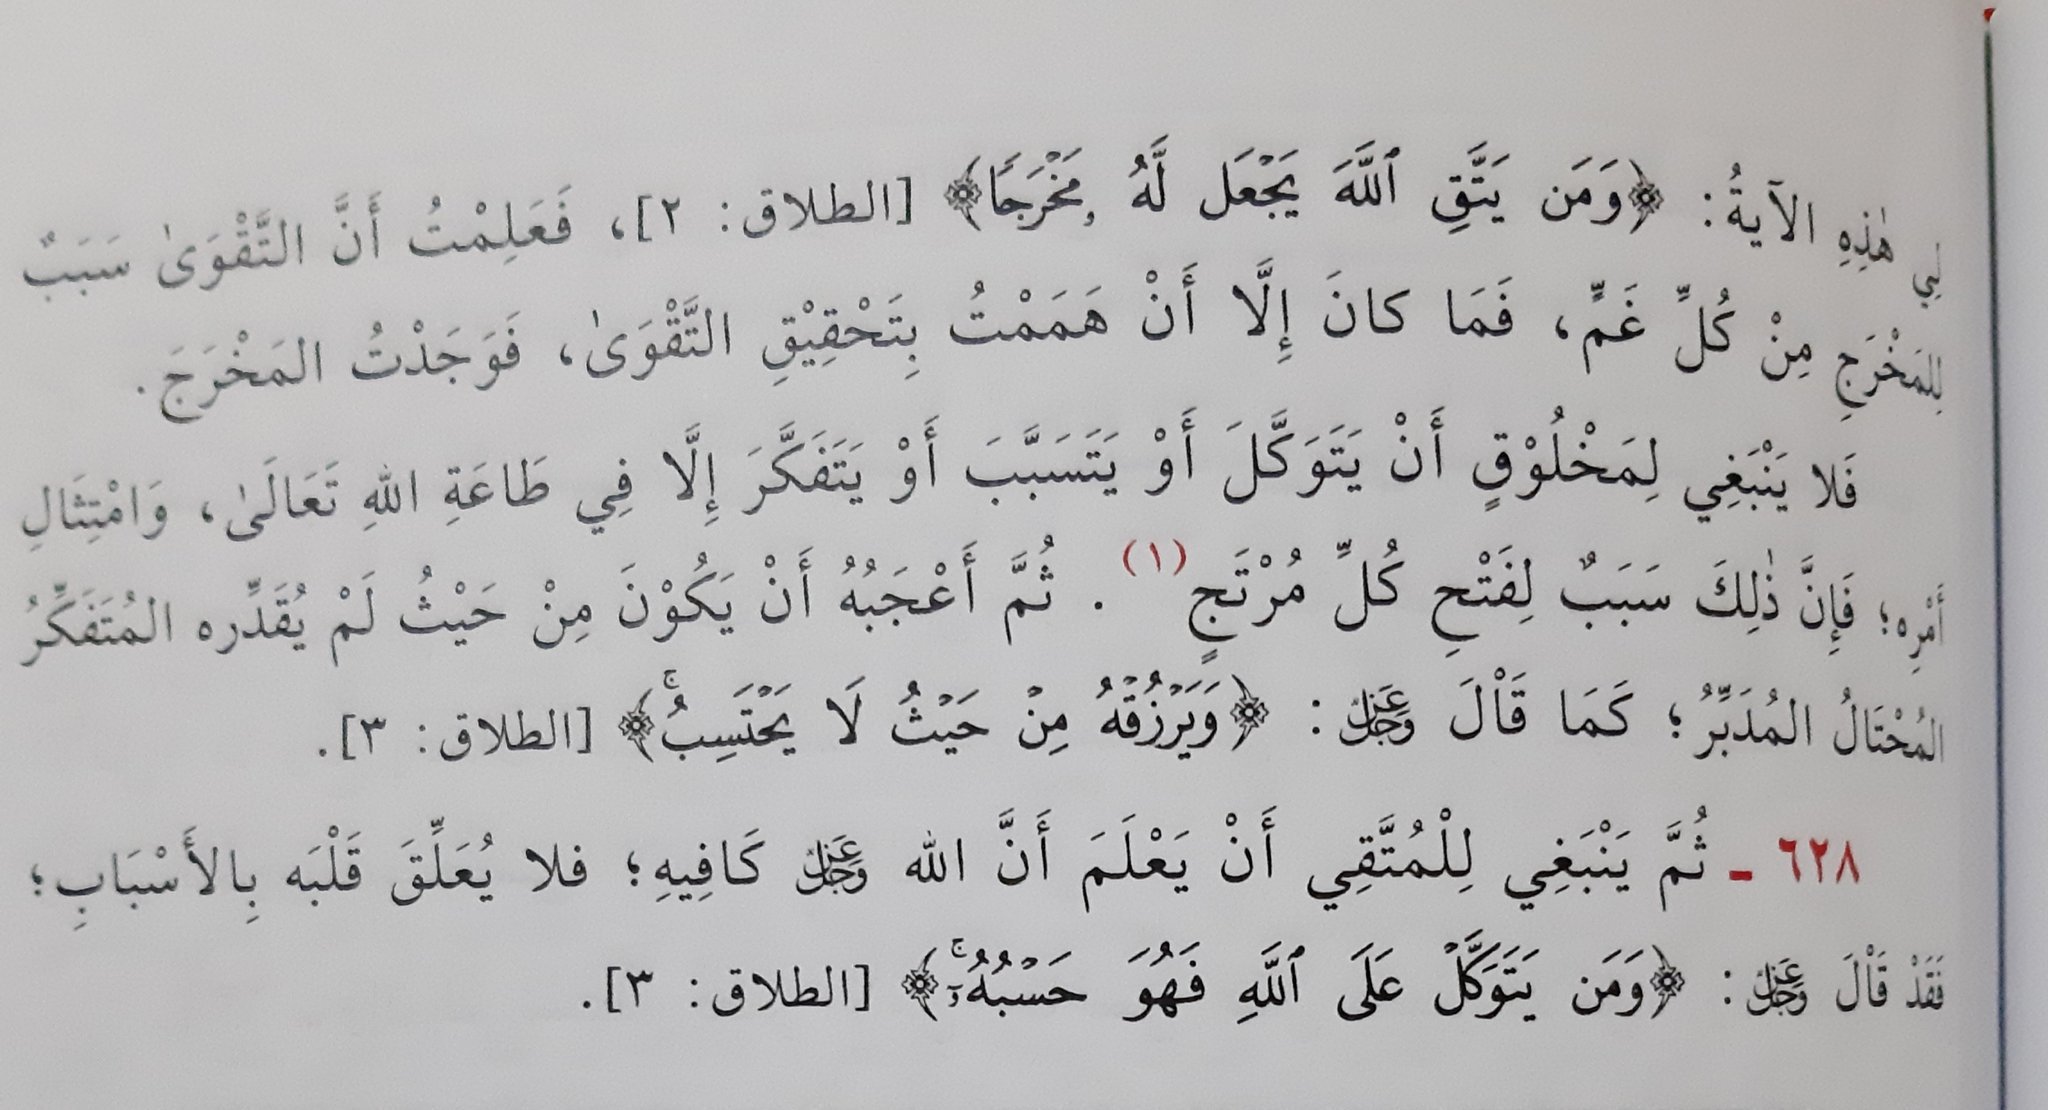 لِي هٰذِهِ الآيةُ: ﴿وَمَن يَتَّقِ ٱللَّهَ يَجْعَل لَّهُۥ مَخْرَجًا﴾ [الطلاق: ٢]، فَعَلِمْتُ أَنَّ التَّقْوَىٰ سَبَبٌ
لِلمَخْرَجِ مِنْ كُلِّ غَمٍّ، فَمَا كانَ إِلَّا أَنْ هَمَمْتُ بِتَحْقِيْقِ التَّقْوَىٰ، فَوَجَدْتُ المَخْرَجَ.
فَلا يَنْبَغِي لِمَخْلُوْقٍ أَنْ يَتَوَكَّلَ أَوْ يَتَسَبَّبَ أَوْ يَتَفَكَّرَ إِلَّا فِي طَاعَةِ اللهِ تَعَالَىٰ، وَامْتِثَالِ
أَمْرِه؛ فَإِنَّ ذٰلِكَ سَبَبٌ لِفَتْحِ كُلِّ مُرْتَجٍ(١). ثُمَّ أَعْجَبُهُ أَنْ يَكُوْنَ مِنْ حَيْثُ لَمْ يُقَدِّره المُتَفَكِّرُ
المُحْتَالُ المُدَبِّرُ؛ كَمَا قَاْلَ عَزَّ وَجَلَّ: ﴿وَيَرْزُقْهُ مِنْ حَيْثُ لَا يَحْتَسِبُۚ﴾ [الطلاق: ٣].
٦٢٨ ـ ثُمَّ يَنْبَغِي لِلْمُتَّقِي أَنْ يَعْلَمَ أَنَّ الله عَزَّ وَجَلَّ كَافِيهِ؛ فلا يُعَلِّقَ قَلْبَه بِالأَسْبَابِ؛
فَقَدْ قَاْلَ عَزَّ وَجَلَّ: ﴿وَمَن يَتَوَكَّلْ عَلَى ٱللَّهِ فَهُوَ حَسْبُهُۥٓۚ﴾ [الطلاق: ٣].